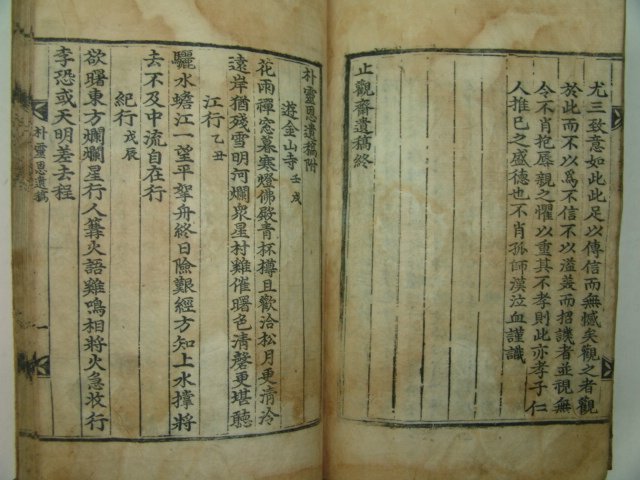 尤三致意如此此足以傳信而無憾矣觀之者觀
於此而不以爲不信不以溢羙而招譏者並視無
令不肖抱辱親之懼以重其不孝則此亦孝子仁
人推已之盛德也不肖孤師漢泣血謹識
止觀齋遺稿終
朴靈思遺稿附
遊金山寺 壬戌
花雨禪窓暮寒燈佛殿靑杯樽且歡洽松月更淸冷
遠岸猶殘雪明河爛衆星村雞催曙色淸磬更堪聽
江行 乙丑
驪水蟾江一望平拏舟終日險艱經方知上水撑將
去不及中流自在行
紀行 戊辰
欲曙東方爛爛星行人篝火語雞鳴相將火急牧行
李恐或天明差去程
朴靈思遺稿 一